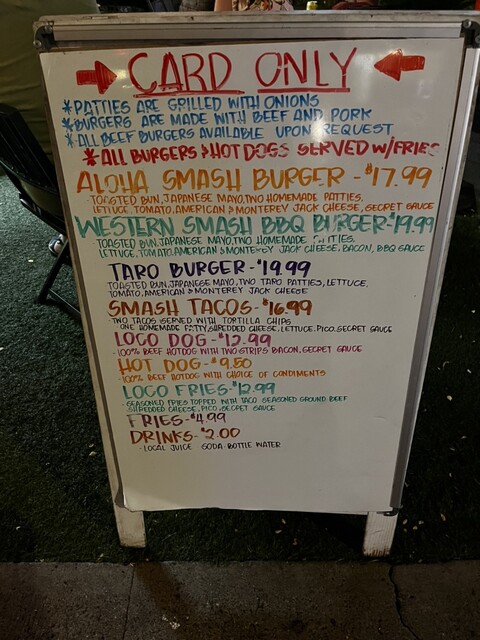 CARD ONLY
*PATTIES ARE GRILLED WITH ONIONS
*BURGERS ARE MADE WITH BEEF AND PORK
*ALL BEEF BURGERS AVAILABLE UPON REQUEST
*ALL BURGERS & HOT DOGS SERVED W/FRIES
ALOHA SMASH BURGER - $17.99
-TOASTED BUN, JAPANESE MAYO, TWO HOMEMADE PATTIES,
LETTUCE, TOMATO, AMERICAN & MONTEREY JACK CHEESE, SECRET SAUCE
WESTERN SMASH BBQ BURGER-$19.99
TOASTED BUN, JAPANESE MAYO, TWO HOMEMADE
LETTUCE, TOMATO, AMERICAN & MONTEREY JACK CHEESE, BACON, BBQ SAUCE
TARO BURGER - $19.99
TOASTED BUN, JAPANESE MAYO, TWO TARO PATTIES, LETTUCE,
TOMATO, AMERICAN & MONTEREY JACK CHEESE
SMASH TACOS - $16.99
-TWO TACOS SERVED WITH TORTILLA CHIPS
ONE HOMEMADE PATTY, SHREDDED CHEESE, LETTUCE, PICO, SECRET SAUCE
LOCO DOG - $12.99
-100% BEEF HOTDOG WITH TWO STRIPS BACON, SECRET SAUCE
HOT DOG - $9.50
-100% BEEF HOTDOG WITH CHOICE OF CONDIMENTS
LOCO FRIES-$12.99
-SEASONED FRIES TOPPED WITH TACO SEASONED GROUND BEEF
SHREDDED CHEESE, PICO, SECRET SAUCE
FRIES-$4.99
DRINKS-$2.00
-LOCAL JUICE SODA BOTTLE WATER